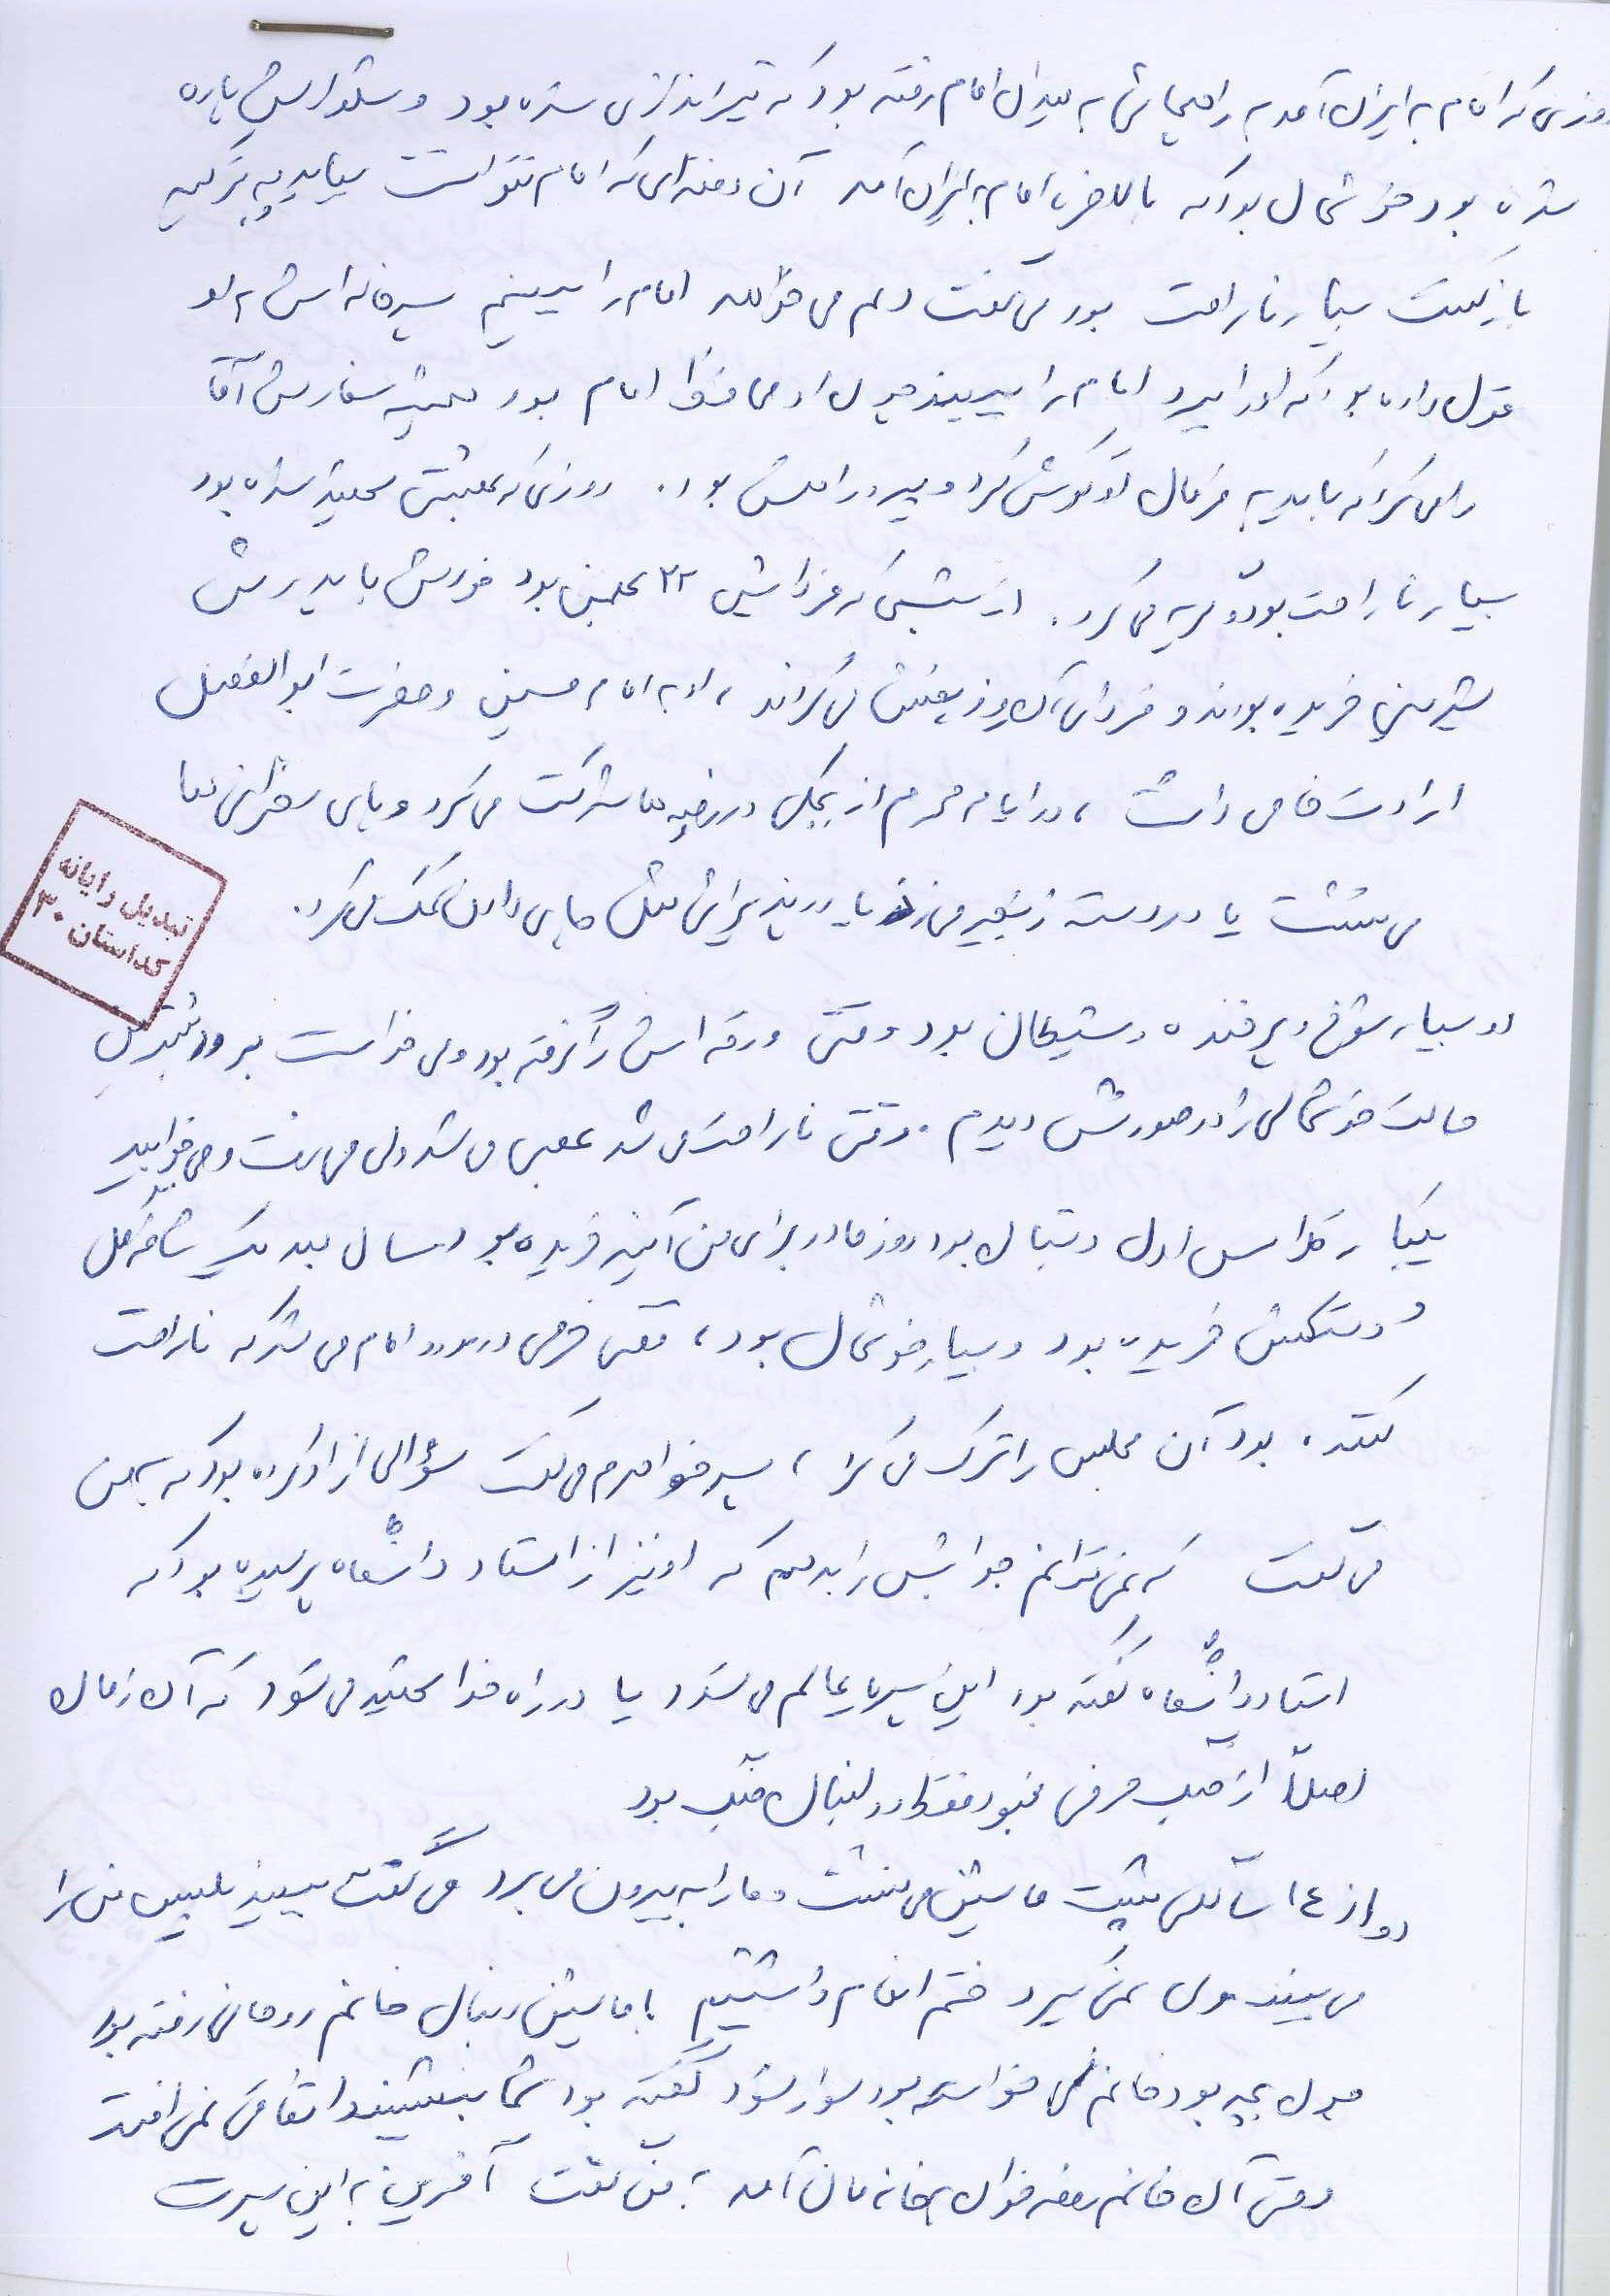 روزی که امام به ایران آمد به راهپیمایی به میدان امام رفته بود که تیراندازی شده بود و شلوارش پاره
شده بود خوشحال بود که بالاخره امام به ایران آمد آن دفعه‌ای که امام نتوانست بیاید و به ترکیه
بازگشت بسیار ناراحت بود می گفت دلم می خواهد امام را ببینم پسرخاله اش به او
قول داده بود که او را ببرد امام را ببیند چون او محافظ امام بود همیشه سفارش آقا
را می کرد که باید به فرمان او گوش کرد و پیرو راهش بود. روزی که بهشتی شهید شده بود
بسیار ناراحت بود و گریه می کرد. از شبی که فردایش ۲۲ بهمن بود خودش با پدرش
شیرینی خریده بودند و فردای آن روز پخش می کردند، او به امام حسین و حضرت ابوالفضل
ارادت خاصی داشت، در ایام محرم از بچگی در روضه ها شرکت می کرد و پای سخنرانی ها
می نشست یا در دسته زنجیر می زد یا در پذیرایی مثل چای دادن کمک می کرد.
تبدیل رایانه
کداستان ۳۰
او بسیار شوخ و پرخنده و شیطان بود وقتی ورقه اش را گرفته بود و می خواست برود شب قبل
حالت خوشحالی را در صورتش دیدم. وقتی ناراحت می شد عصبی می شد ولی می رفت و می خوابید
یکبار کلاس اول دبستان بود روز مادر برای من آینه خریده بود سال بعد یک شاخه گل
و دستکش خریده بود و بسیار خوشحال بود، وقتی حرفی در مورد امام می شد که ناراحت
کننده بود آن مجلس را ترک می کرد، پسر خواهرم می گفت سؤالی از او کرده بود که به من
می گفت که نمی توانم جوابش را بدهم که او نیز از استاد دانشگاه پرسیده بود که
استاد دانشگاه گفته بود این پسر یا عالم می شود یا در راه خدا شهید می شود که آن زمان
اصلاً از جنگ حرفی نبود فقط در لبنان جنگ بود
او از ۱۴ سالگی پشت ماشین می نشست و ما را به بیرون می برد می گفت ببینید پلیس من را
می بیند ولی نمی گیرد ختم انعام داشتیم با ماشین دنبال خانم روحانی رفته بود
چون بچه بود خانم نمی خواسته بود سوار شود گفته بود شما بنشینید اتفاقی نمی افتد
وقتی آن خانم روضه خوان به خانه مان آمد به من گفت آفرین به این پسرت